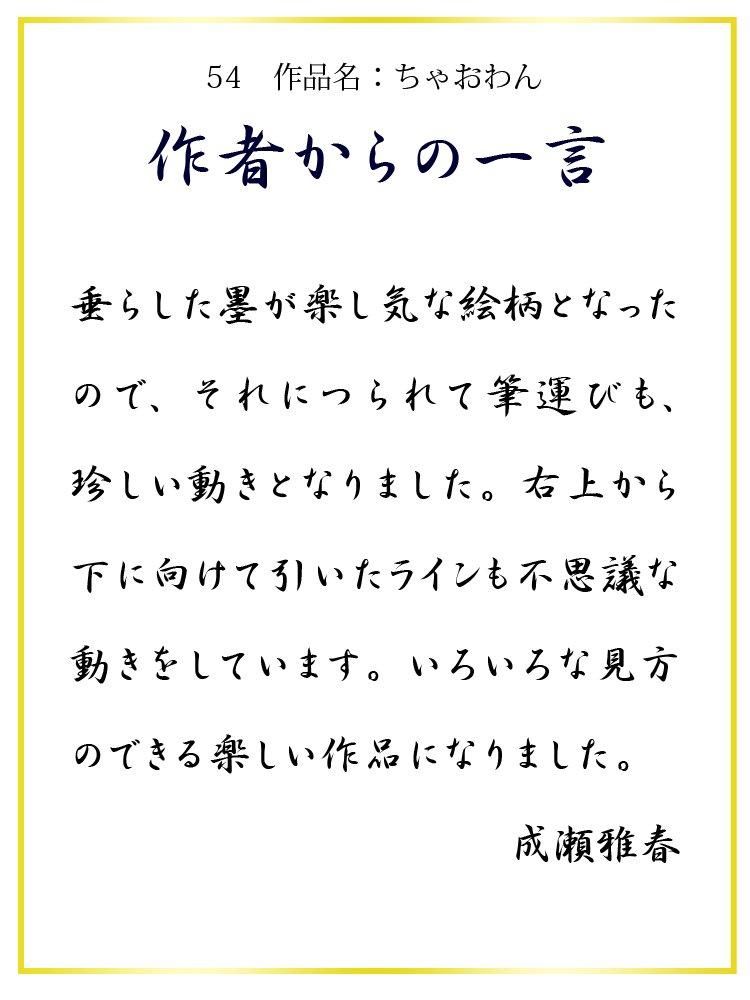 54　作品名：ちゃおわん
作者からの一言
垂らした墨が楽し気な絵柄となった
ので、それにつられて筆運びも、
珍しい動きとなりました。右上から
下に向けて引いたラインも不思議な
動きをしています。いろいろな見方
のできる楽しい作品になりました。
成瀬雅春